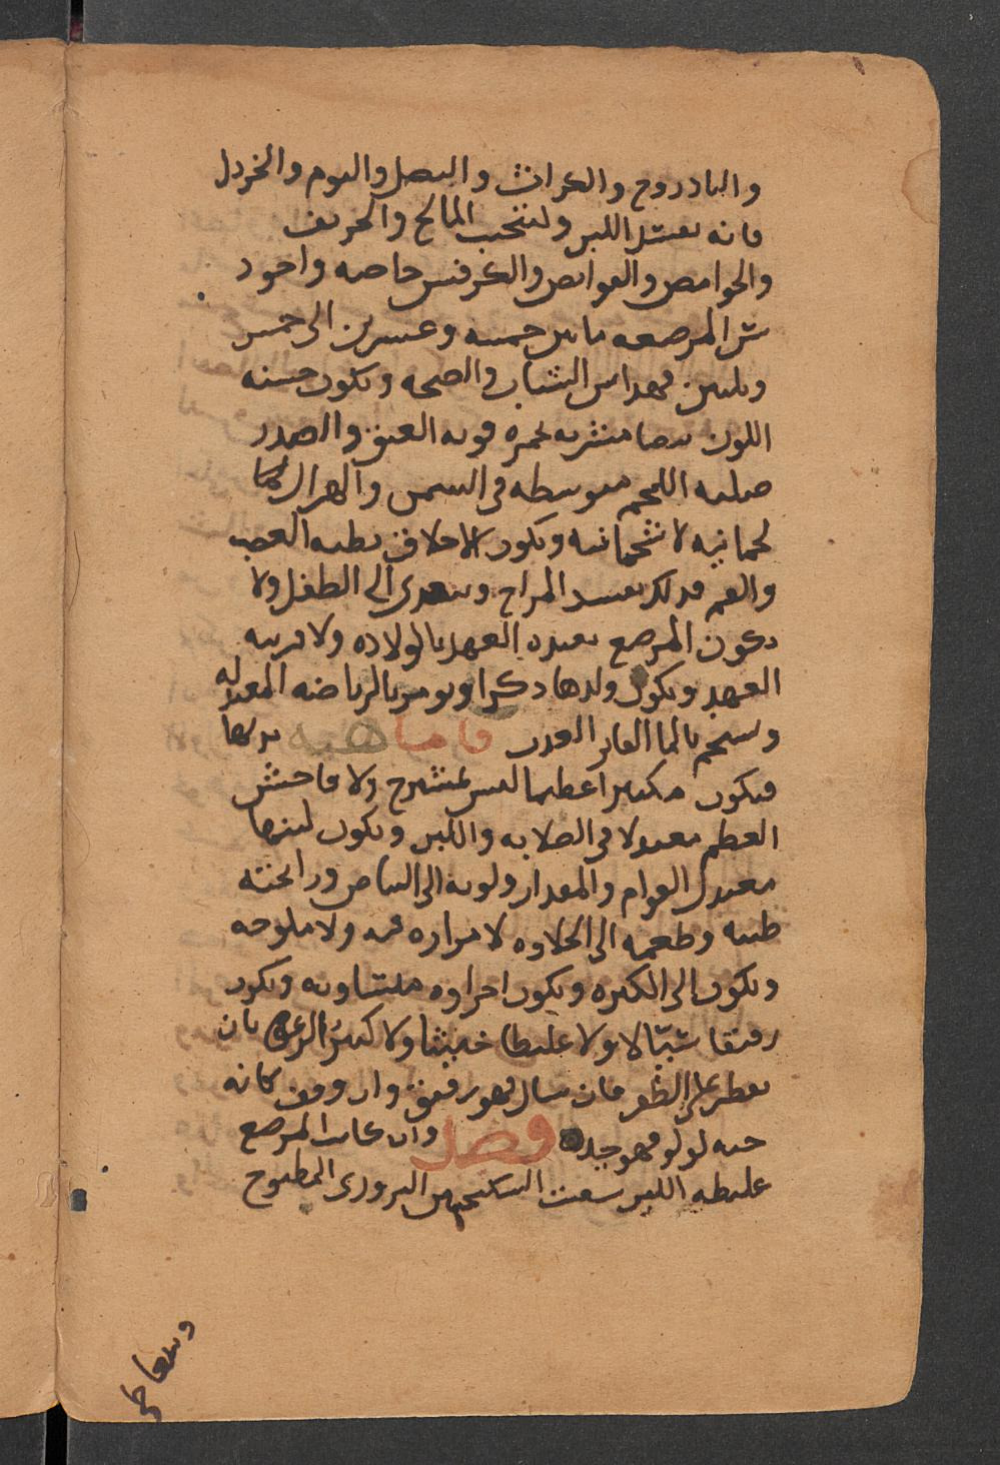 والبادروج والكراث والبصل والثوم والخردل
فانه يفسد اللبن ولتجتنب المالح والحريف
والحوامض والقوابض والكرفس خاصه واجود
سن المرضعه ما بين خمسه وعشرين الى خمس
وثلثين فهذا سن الشباب والصحه وتكون حسنه
اللون بيضا مشربه بحمره قويه العنق والصدر
صلبه اللحم متوسطه في السمن والهزال
لحمانيه لا شحمانيه وتكون الاخلاق بطيه الغضب
والغم فذلك يفسد المزاج ويتعدى الى الطفل ولا
تكون المرضع بعيده العهد بالولاده ولا قريبه
العهد ويكون ولدها ذكرا وتومر بالرياضه المعتدله
وتستحم بالما الفاتر العذب فاما هيه ثديها
فيكون مكتنزا عظيما ليس بمشرح ولا فاحش
العظم معتدلا في الصلابه واللين ويكون لبنها
معتدل القوام والمقدار ولونه الى البياض ورائحته
طيبه وطعمه الى الحلاوه لا مراره فيه ولا ملوحه
ويكون الى الكثره ويكون اجزاوه متشاويه ويكون
رقيقا سيّالا ولا غليظا خبيثا ولا كثير الرغوه بان
يقطر على الظفر فان سال فهو رقيق وان وقف كانه
حبه لولو فهو جيد فصل وان كانت المرضع
غليظه اللبن سقيت السكنجبين البزوري المطبوخ